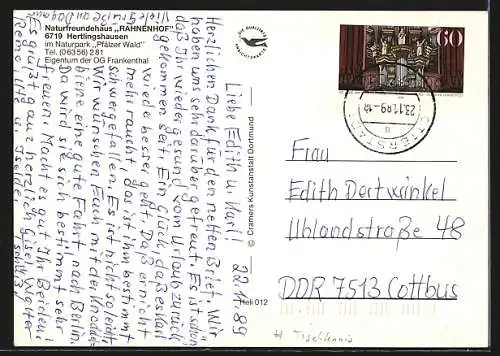 Naturfreundehaus „RAHNENHOF"
6719 Hertlingshausen
im Naturpark „Pfälzer Wald"
Tel. (06356) 281
Eigentum der OG Frankenthal
60
23.11.89
Liebe Edith u. Karl! 22.11.89
Herzlichen Dank für den netten Brief. Wir
haben uns sehr darüber gefreut. Es ist schön
daß Ihr wieder gesund vom Urlaub zurück
gekommen seit. Ein Glück, daß es Karl
wieder besser geht. Daß er nicht
mehr raucht, das ist ihm bestimmt
schwergefallen. Es ist nicht so leicht.
Wir wünschen Euch mit der
eine gute Fahrt nach Berlin.
Da wird sie sich bestimmt sehr
freuen. Macht es gut Ihr Beiden!
Es grüßt ganz herzlich Gisel, Walter
Viele Grüße an Dagmar
© Cramers Kunstanstalt Dortmund
Heli 012
Frau
Edith Dortwinkel
Uhlandstraße 48
DDR 7513 Cottbus
# Tischtennis